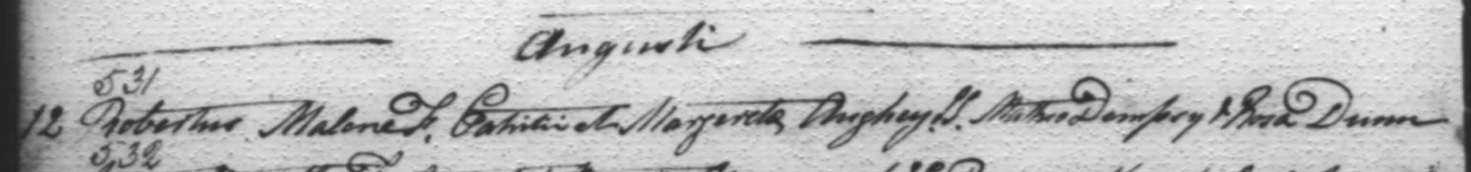 Augusti
531
12 Robertus Malone F. Patritii et Margareta Aughey S.S. Matheo Dempsey & Rosa Dunn
532